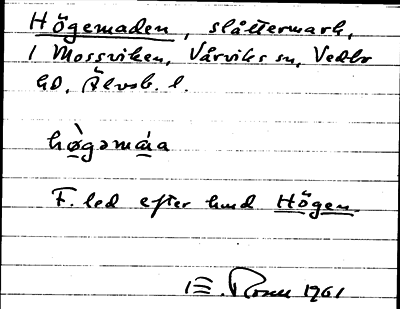 Högemaden, slåttermark,
i Mossviken, Vårviks sn, Vedbo
hd, Älvsb. l.
hø̀gəmáa
F. led efter hmd Högen.
1961